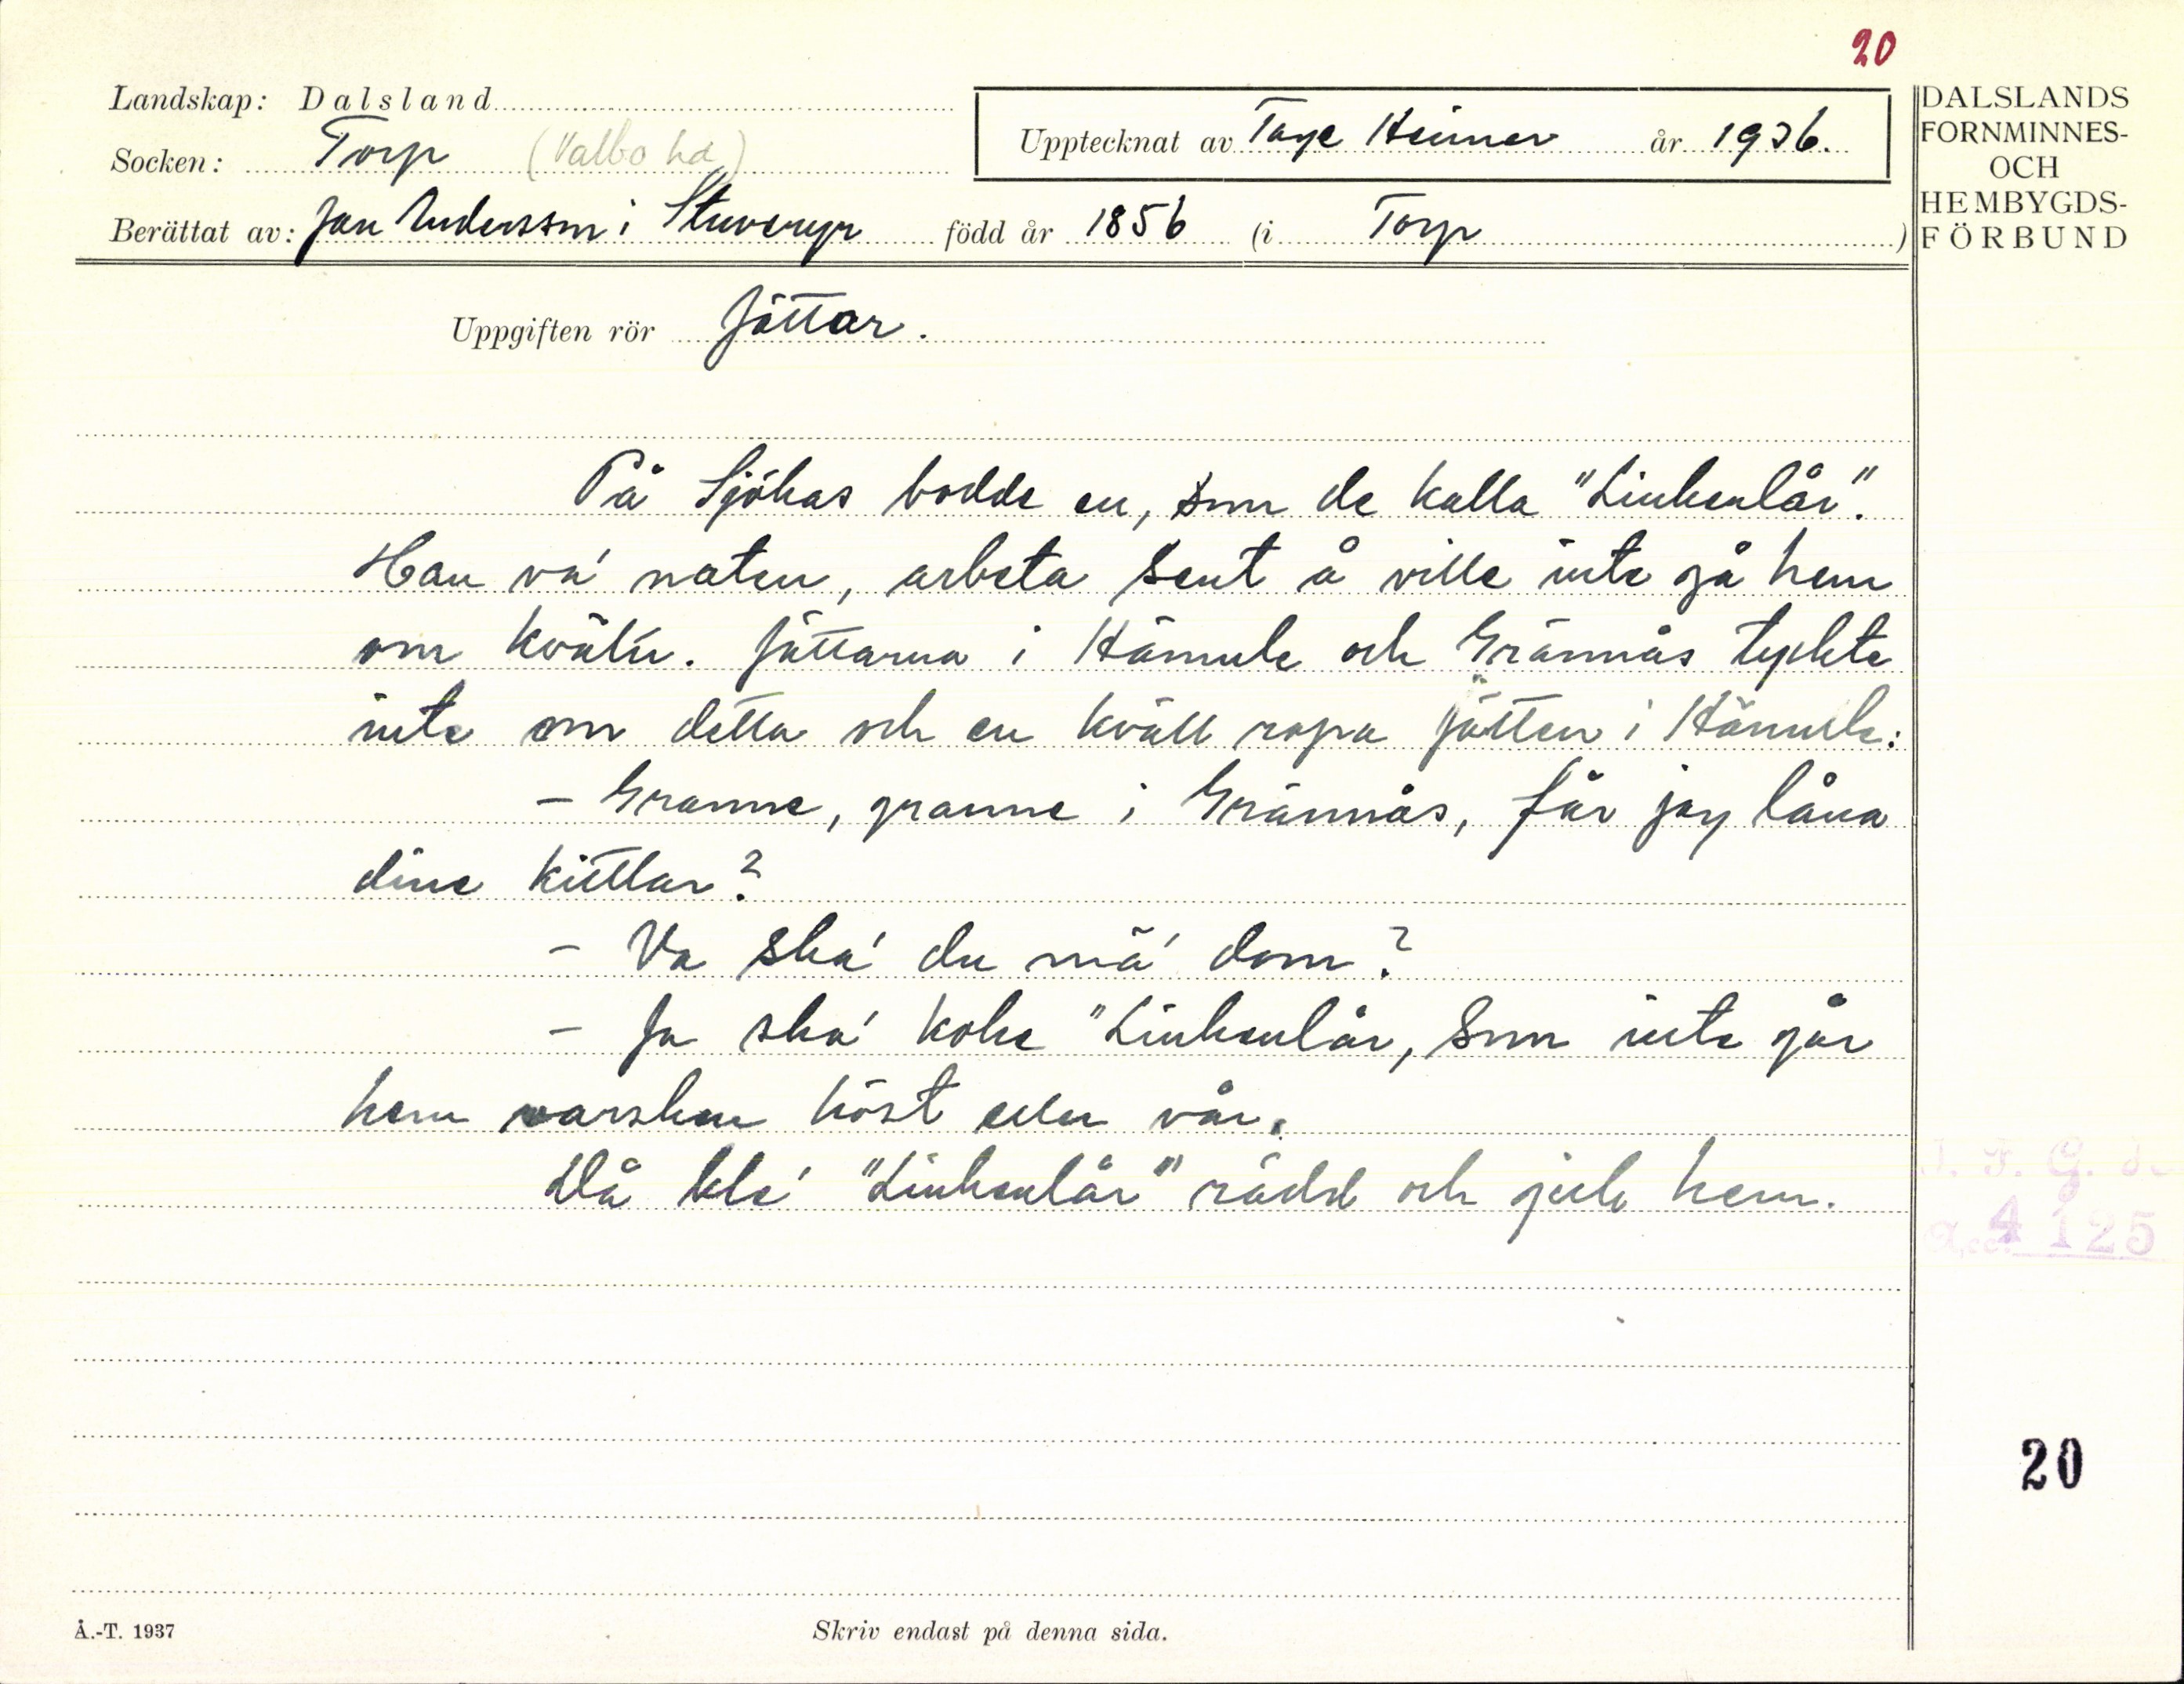 20
Landskap: Dalsland
Socken: Torp (Valbo hd)
Upptecknat av Tage Heimer år 1936.
Berättat av: Jan Andersson i Stuveryr född år 1856 (i Torp)
DALSLANDS
FORNMINNES-
OCH
HEMBYGDS-
FÖRBUND
Uppgiften rör Jättar.
På Sjöhas bodde en, som de kalla "Linkenlår".
Han va' naten, arbeta sent å ville inte gå hem
om kväln. Jättarna i Hämule och Grännås tyckte
inte om detta och en kväll ropa jätten i Hämule:
- Granne, granne i Grännås, får jag låna
dine kittlar?
- Va ska' du mä' dom?
- Ja ska' koke "Linkenlår, som inte går
hem varsken höst eller vår.
Då ble' "Linkenlår" rädd och gick hem.
I. F. G. d.
Acc. 4125
20
Å.-T. 1937
Skriv endast på denna sida.